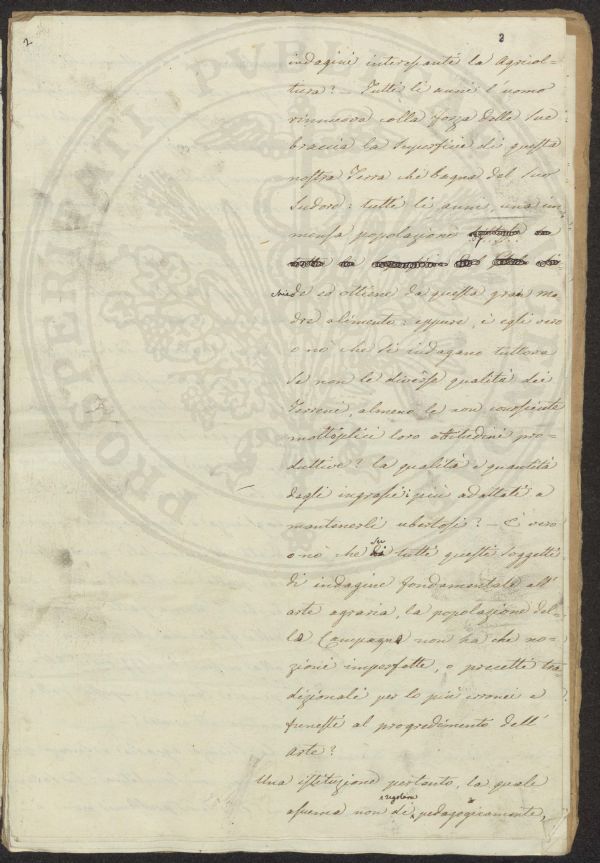 2
3
indagini interessanti la Agricol=
tura? - Tutti li anni l'uomo
rinnuova colla forza delle sue
braccia la superficie di questa
nostra Terra che bagna del suo
sudore: tutti li anni una im
mensa popolazione
chie=de ed ottiene da questa gran ma
dre alimento: eppure, è egli vero
o nò che si indagano tuttora
se non le diverse qualità dei
Terreni, almeno le non conosciute
moltiplici loro attitudini pro=
duttive? la qualità e quantità
degli ingrassi più adattati a
mantenerli ubertosi? - È vero
o nò che su tutti questi soggetti
di indagine fondamentale all'
arte agraria, la popolazione del=
la Campagna non ha che no=
zioni imperfette, o precetti tra
dizionali per lo più erronei e
funesti al progredimento dell'
arte?
Una istituzione pertanto, la quale
assuma non di regolare pedagogicamente,
PROSPERITATI PVBLICAE AVG